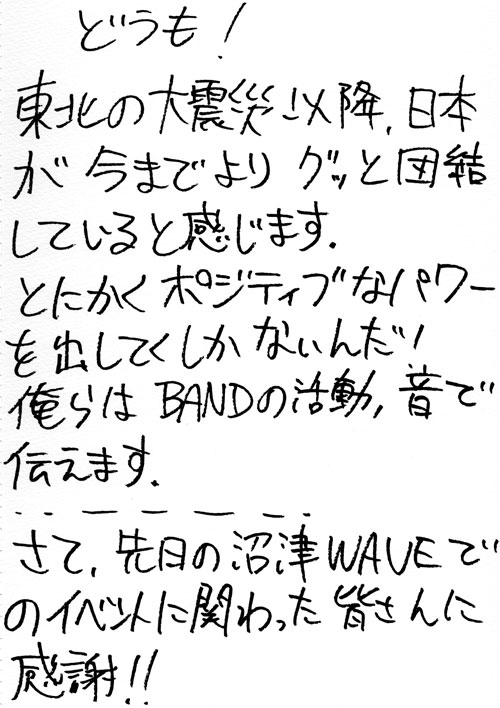 どうも!
東北の大震災以降,日本
が今までよりグッと団結
していると感じます.
とにかくポジティブなパワー
を出してくしかないんだ!
俺らはBANDの活動,音で
伝えます.
さて,先日の沼津WAVEで
のイベントに関わった皆さんに
感謝!!